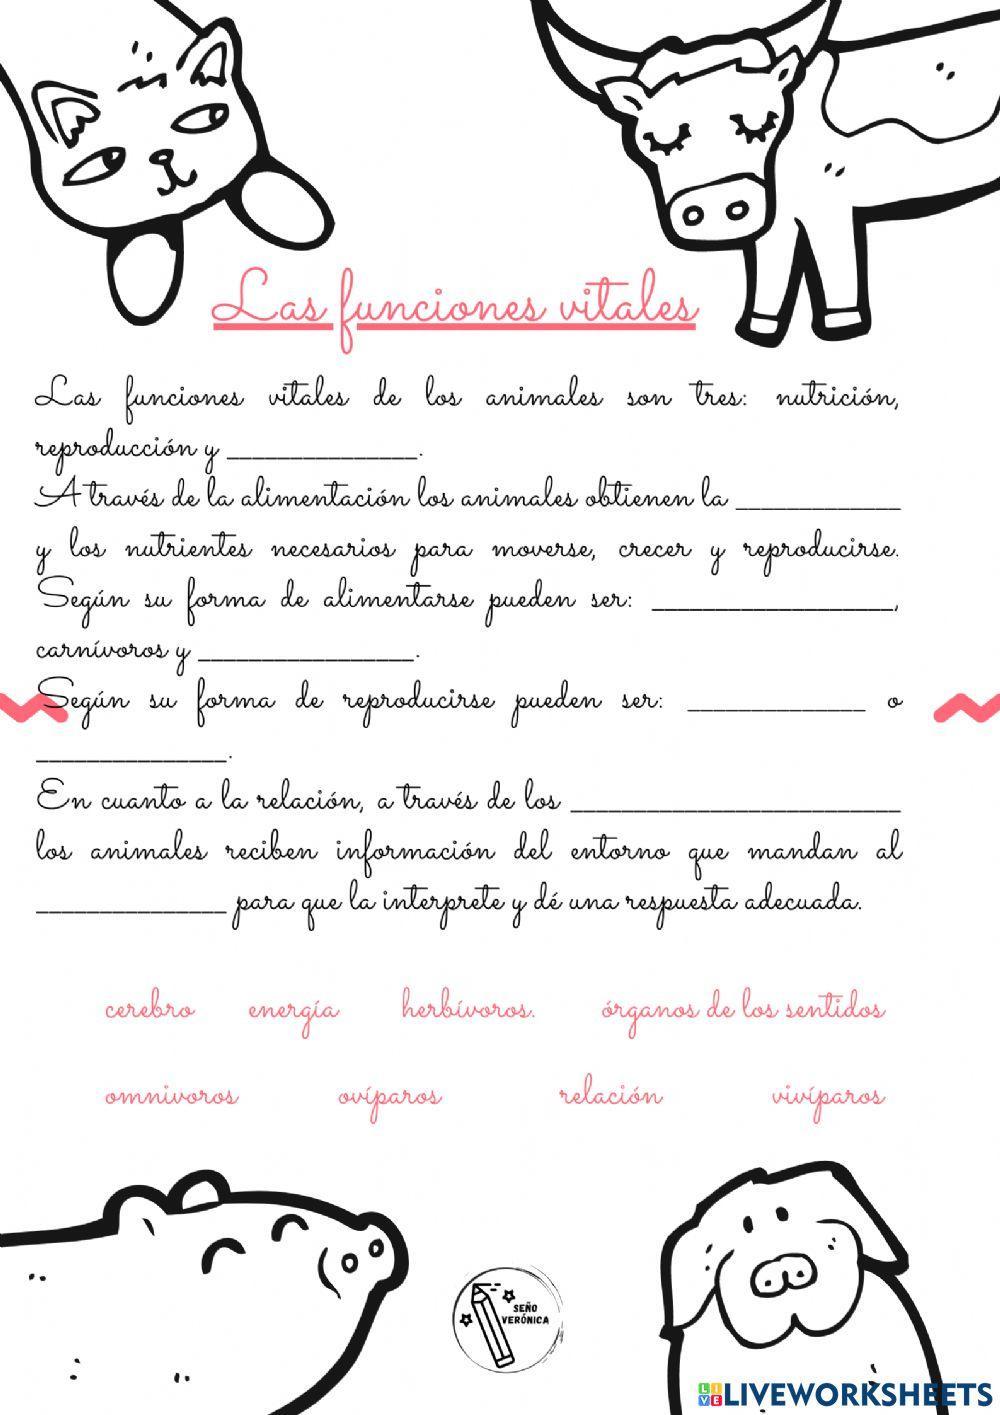 Las funciones vitales
Las funciones vitales de los animales son tres: nutrición,
reproducción y _______________.
A través de la alimentación los animales obtienen la _____________
y los nutrientes necesarios para moverse, crecer y reproducirse.
Según su forma de alimentarse pueden ser: ___________________,
carnívoros y _________________.
Según su forma de reproducirse pueden ser: ______________ o
_______________.
En cuanto a la relación, a través de los __________________________
los animales reciben información del entorno que mandan al
_______________ para que la interprete y dé una respuesta adecuada.
cerebro energía herbívoros. órganos de los sentidos
omnivoros ovíparos relación vivíparos
SEÑO
VERÓNICA
LIVE LIVEWORKSHEETS